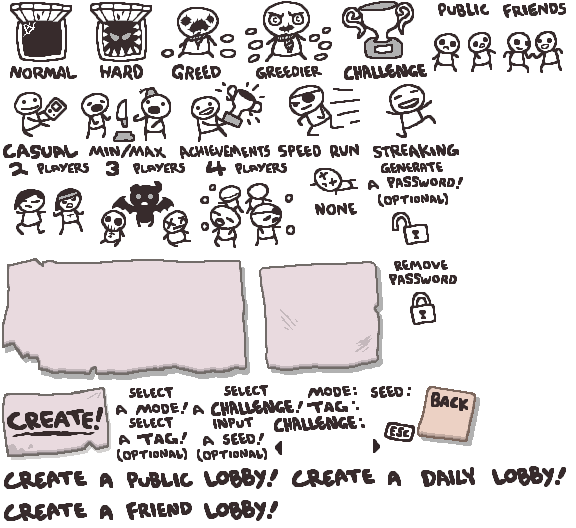 PUBLIC FRIENDS
NORMAL HARD GREED GREEDIER CHALLENGE
CASUAL MIN/MAX ACHIEVEMENTS SPEED RUN STREAKING
2 PLAYERS 3 PLAYERS 4 PLAYERS
GENERATE
A PASSWORD!
(OPTIONAL)
NONE
REMOVE
PASSWORD
CREATE!
SELECT
A MODE!
SELECT
A TAG!
(OPTIONAL)
SELECT
A CHALLENGE!
INPUT
A SEED!
(OPTIONAL)
MODE: SEED:
TAG:
CHALLENGE:
ESC
BACK
CREATE A PUBLIC LOBBY! CREATE A DAILY LOBBY!
CREATE A FRIEND LOBBY!